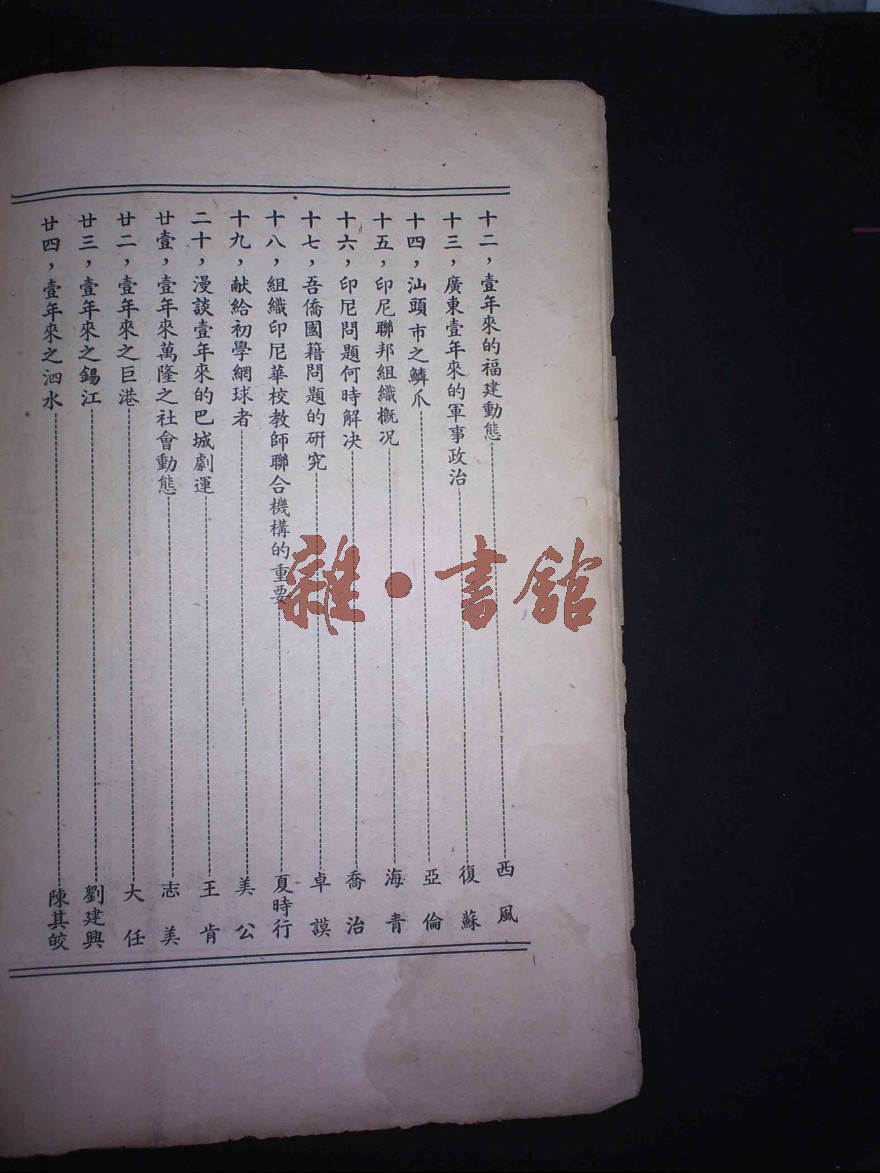 十二，壹年來的福建動態 西風
十三，廣東壹年來的軍事政治 復蘇
十四，汕頭市之鱗爪 亞倫
十五，印尼聯邦組織概況 海青
十六，印尼問題何時解决 喬治
十七，吾僑國籍問題的研究 卓謨
十八，組織印尼華校教師聯合機構的重要 夏時行
十九，献給初學網球者 美公
二十，漫談壹年來的巴城劇運 王肯
廿壹，壹年來萬隆之社會動態 志美
廿二，壹年來之巨港 大任
廿三，壹年來之錫江 劉建興
廿四，壹年來之泗水 陳其皎
雜·書館